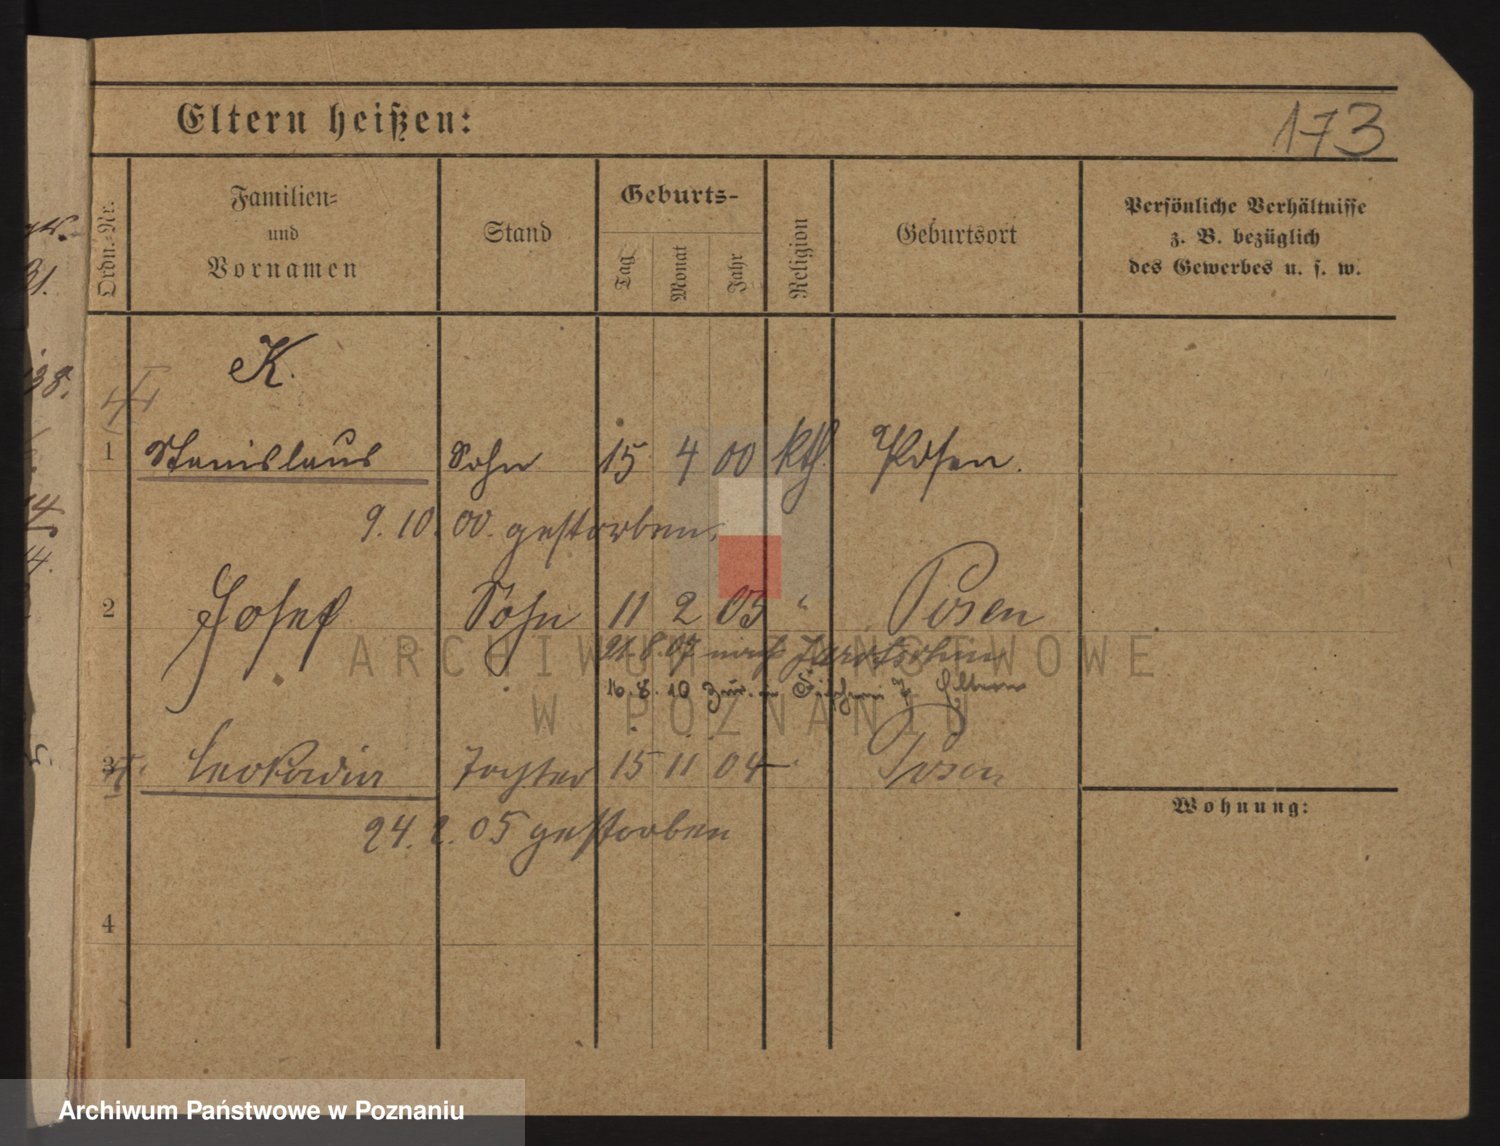 Eltern heißen:
173
Ordn.=Nr.
Familien=
und
Vornamen
Stand
Geburts-
Tag
Monat
Jahr
Religion
Geburtsort
Persönliche Verhältnisse
z. B. bezüglich
des Gewerbes u. s. w.
K.
1 Stanislaus Sohn 15 4 00 kth. Posen.
9. 10. 00. gestorben.
2 Josef Sohn 11 2 03 " Posen
21. 8. 07 nach Jarotschin
16. 8. 10 zur. Eltern
3 Leokadia Tochter 15 11 04 Posen
24. 2. 05 gestorben
Wohnung:
4
ARCHIWUM PAŃSTWOWE
W POZNANIU
Archiwum Państwowe w Poznaniu